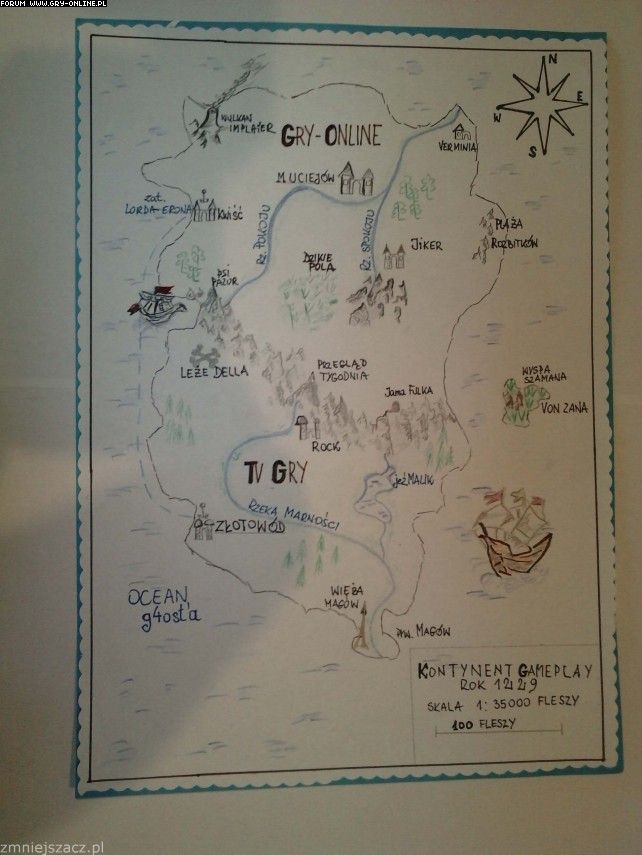 FORUM WWW.GRY-ONLINE.PL
N
E
W
S
WULKAN
IMPLAJER
GRY-ONLINE
VERMINIA
MUCIEJÓW
zat.
LORDA-ERONA
KWIŚĆ
RZ. POKOJU
RZ. SPOKOJU
DZIKIE
POLA
JIKER
PLAŻA
ROZBITKÓW
PSI
PAZUR
LEŻE DELLA
PRZEGLĄD
TYGODNIA
Jama FILKA
WYSPA
SZAMANA
VON ZANA
ROCK
TV GRY
jeź MALIK
RZEKA MARNOŚCI
ZŁOTOWÓD
OCEAN
g4ost'a
WIEŻA
MAGÓW
płw. MAGÓW
KONTYNENT GAMEPLAY
SKALA 1:35000 FLESZY
100 FLESZY
zmniejszacz.pl